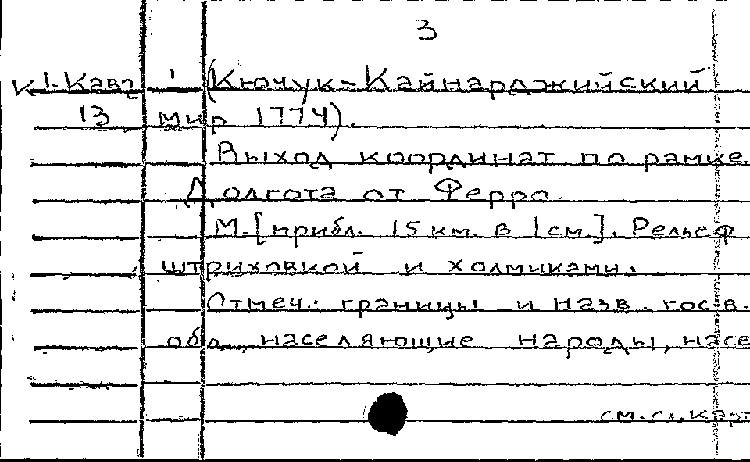 3
К 1-Кавк 1 (Кючук-Кайнарджийский
13 мир 1774).
Выход координат по рамке.
Долгота от Ферро
М.[прибл. 15 км. в 1 см.]. Рельеф
штриховкой и холмиками.
Отмеч.: границы и назв. гос.в.
обл., населяющие народы, насе
см. сл. карт